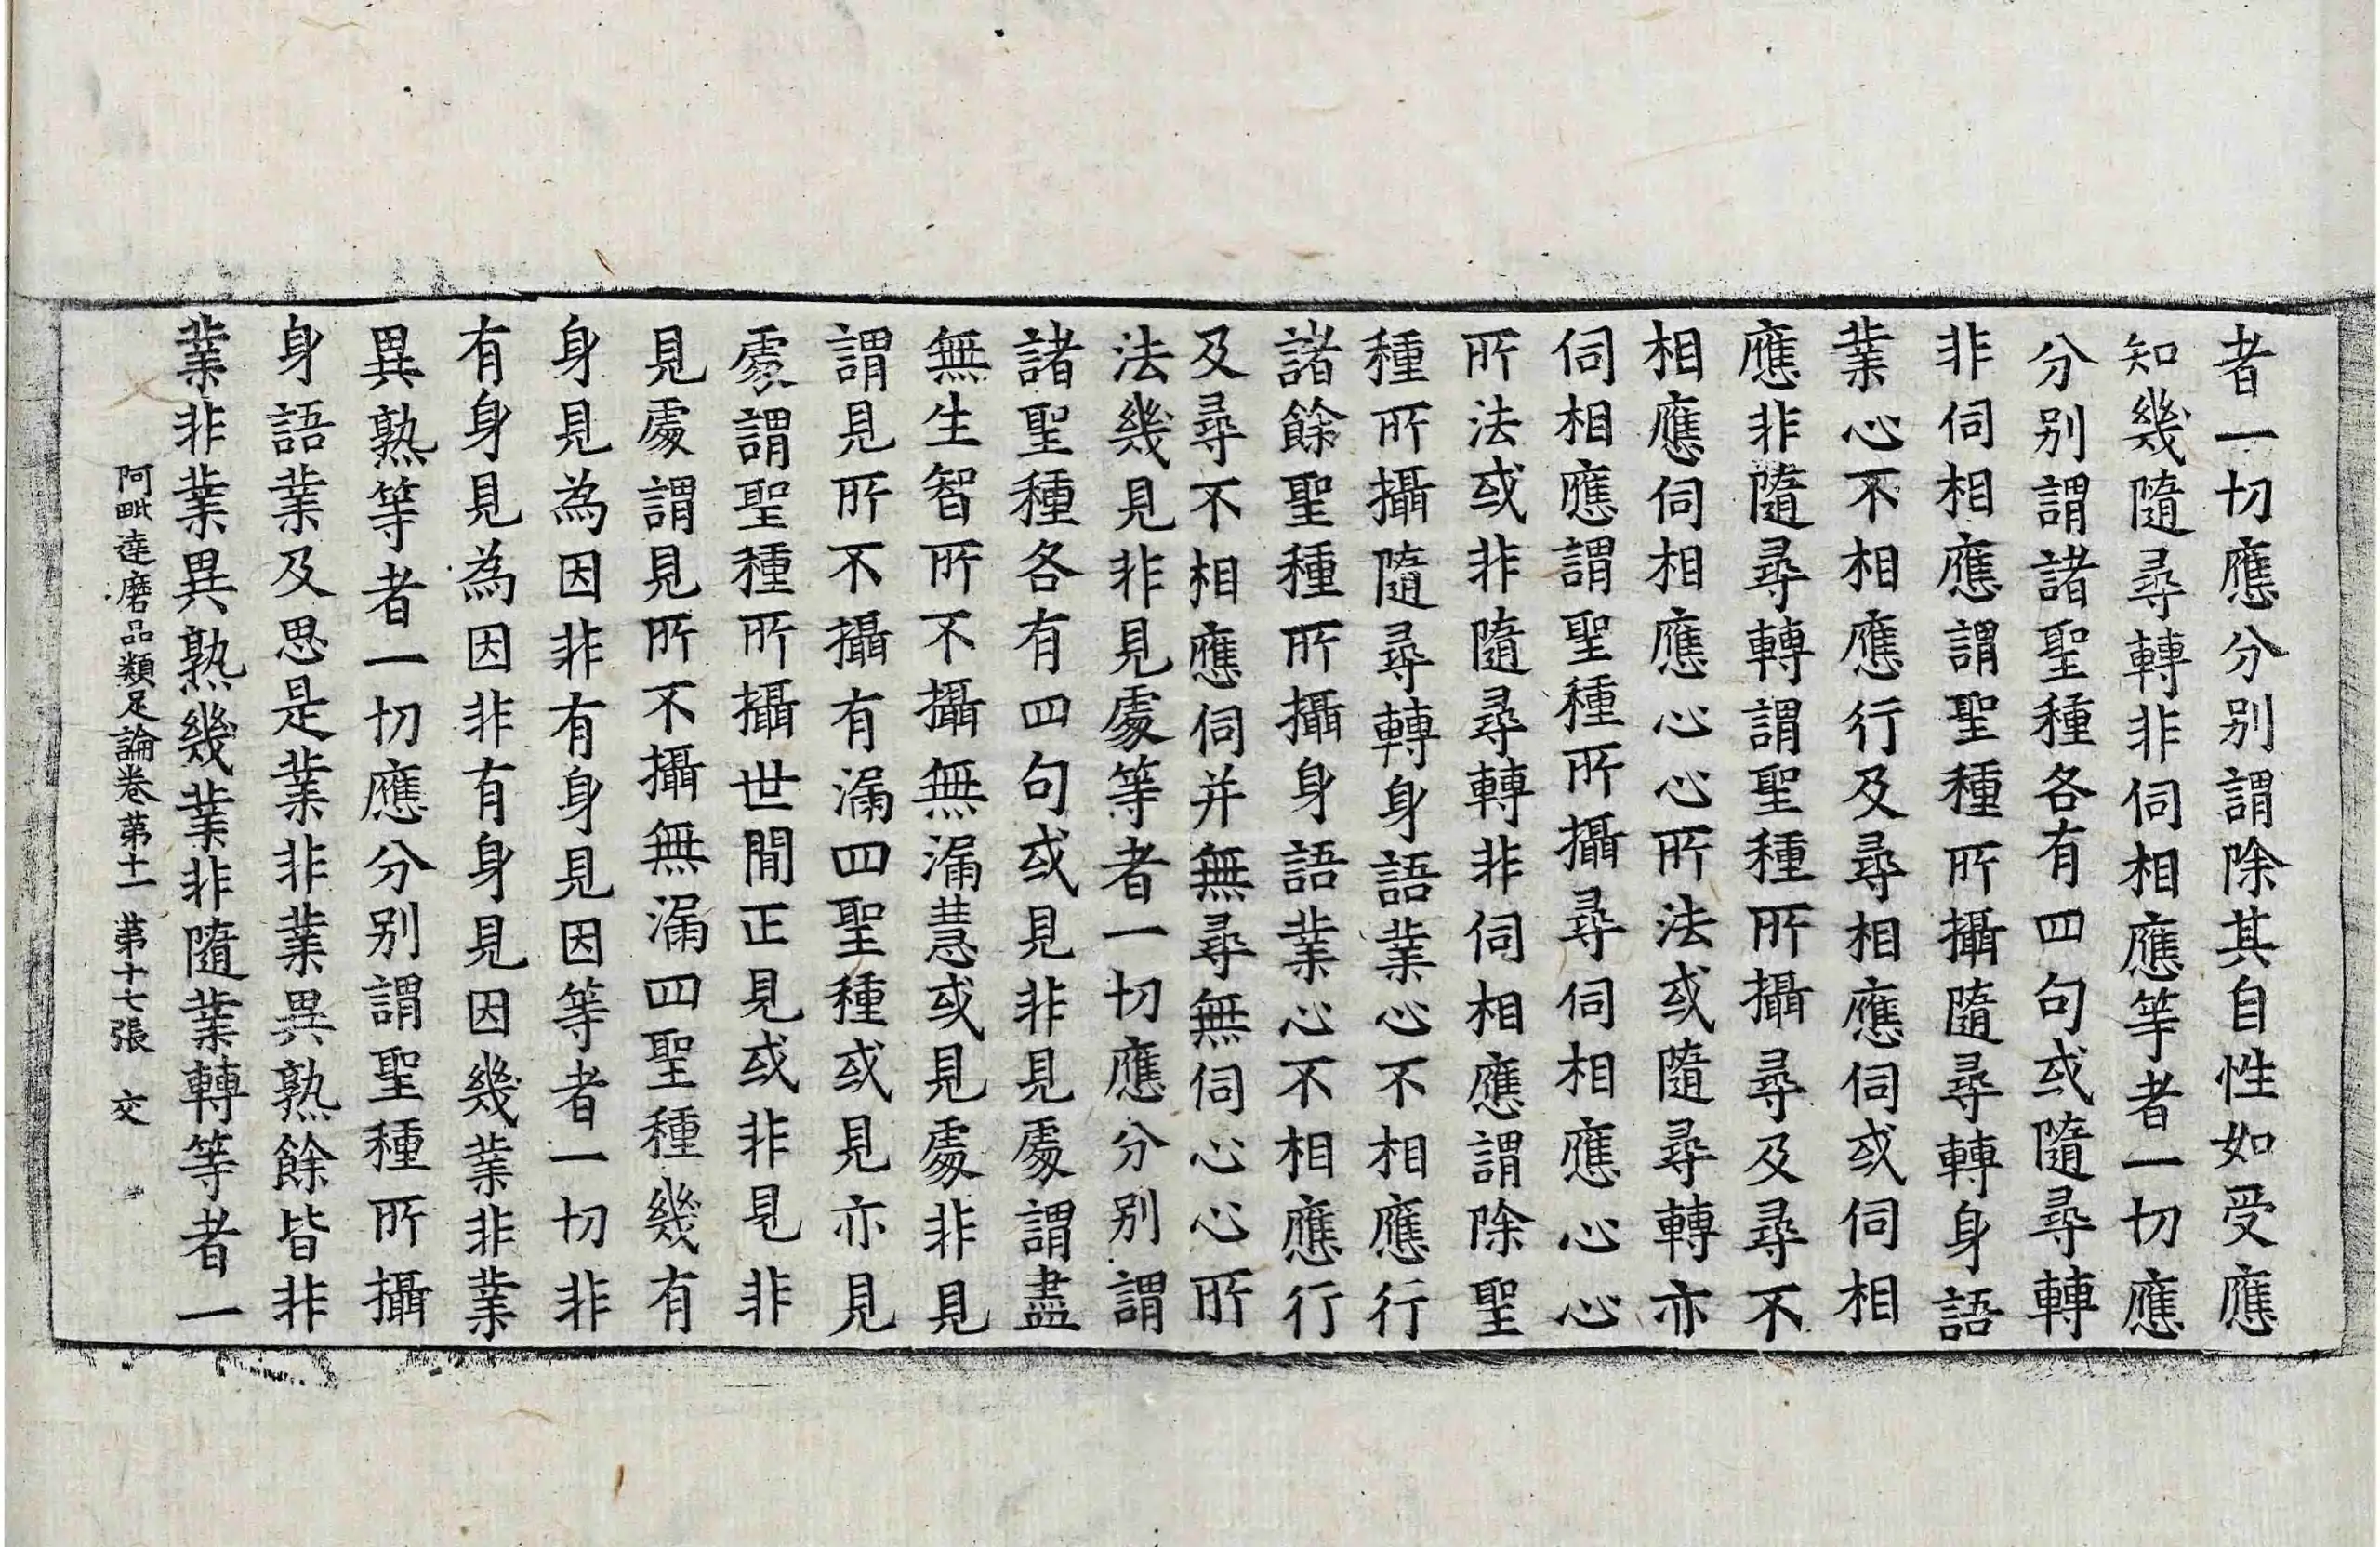 者一切應分別謂除其自性如受應
知幾隨尋轉非伺相應等者一切應
分別謂諸聖種各有四句或隨尋轉
非伺相應謂聖種所攝隨尋轉身語
業心不相應行及尋相應伺或伺相
應非隨尋轉謂聖種所攝尋及尋不
相應伺相應心心所法或隨尋轉亦
伺相應謂聖種所攝尋伺相應心心
所法或非隨尋轉非伺相應謂除聖
種所攝隨尋轉身語業心不相應行
諸餘聖種所攝身語業心不相應行
及尋不相應伺并無尋無伺心心所
法幾見非見處等者一切應分別謂
諸聖種各有四句或見非見處謂盡
無生智所不攝無漏慧或見處非見
謂見所不攝有漏四聖種或見亦見
處謂聖種所攝世間正見或非見非
見處謂見所不攝無漏四聖種幾有
身見為因非有身見因等者一切非
有身見為因非有身見因幾業非業
異熟等者一切應分別謂聖種所攝
身語業及思是業非業異熟餘皆非
業非業異熟幾業非隨業轉等者一
阿毗達磨品類足論卷第十一 第十七張 交